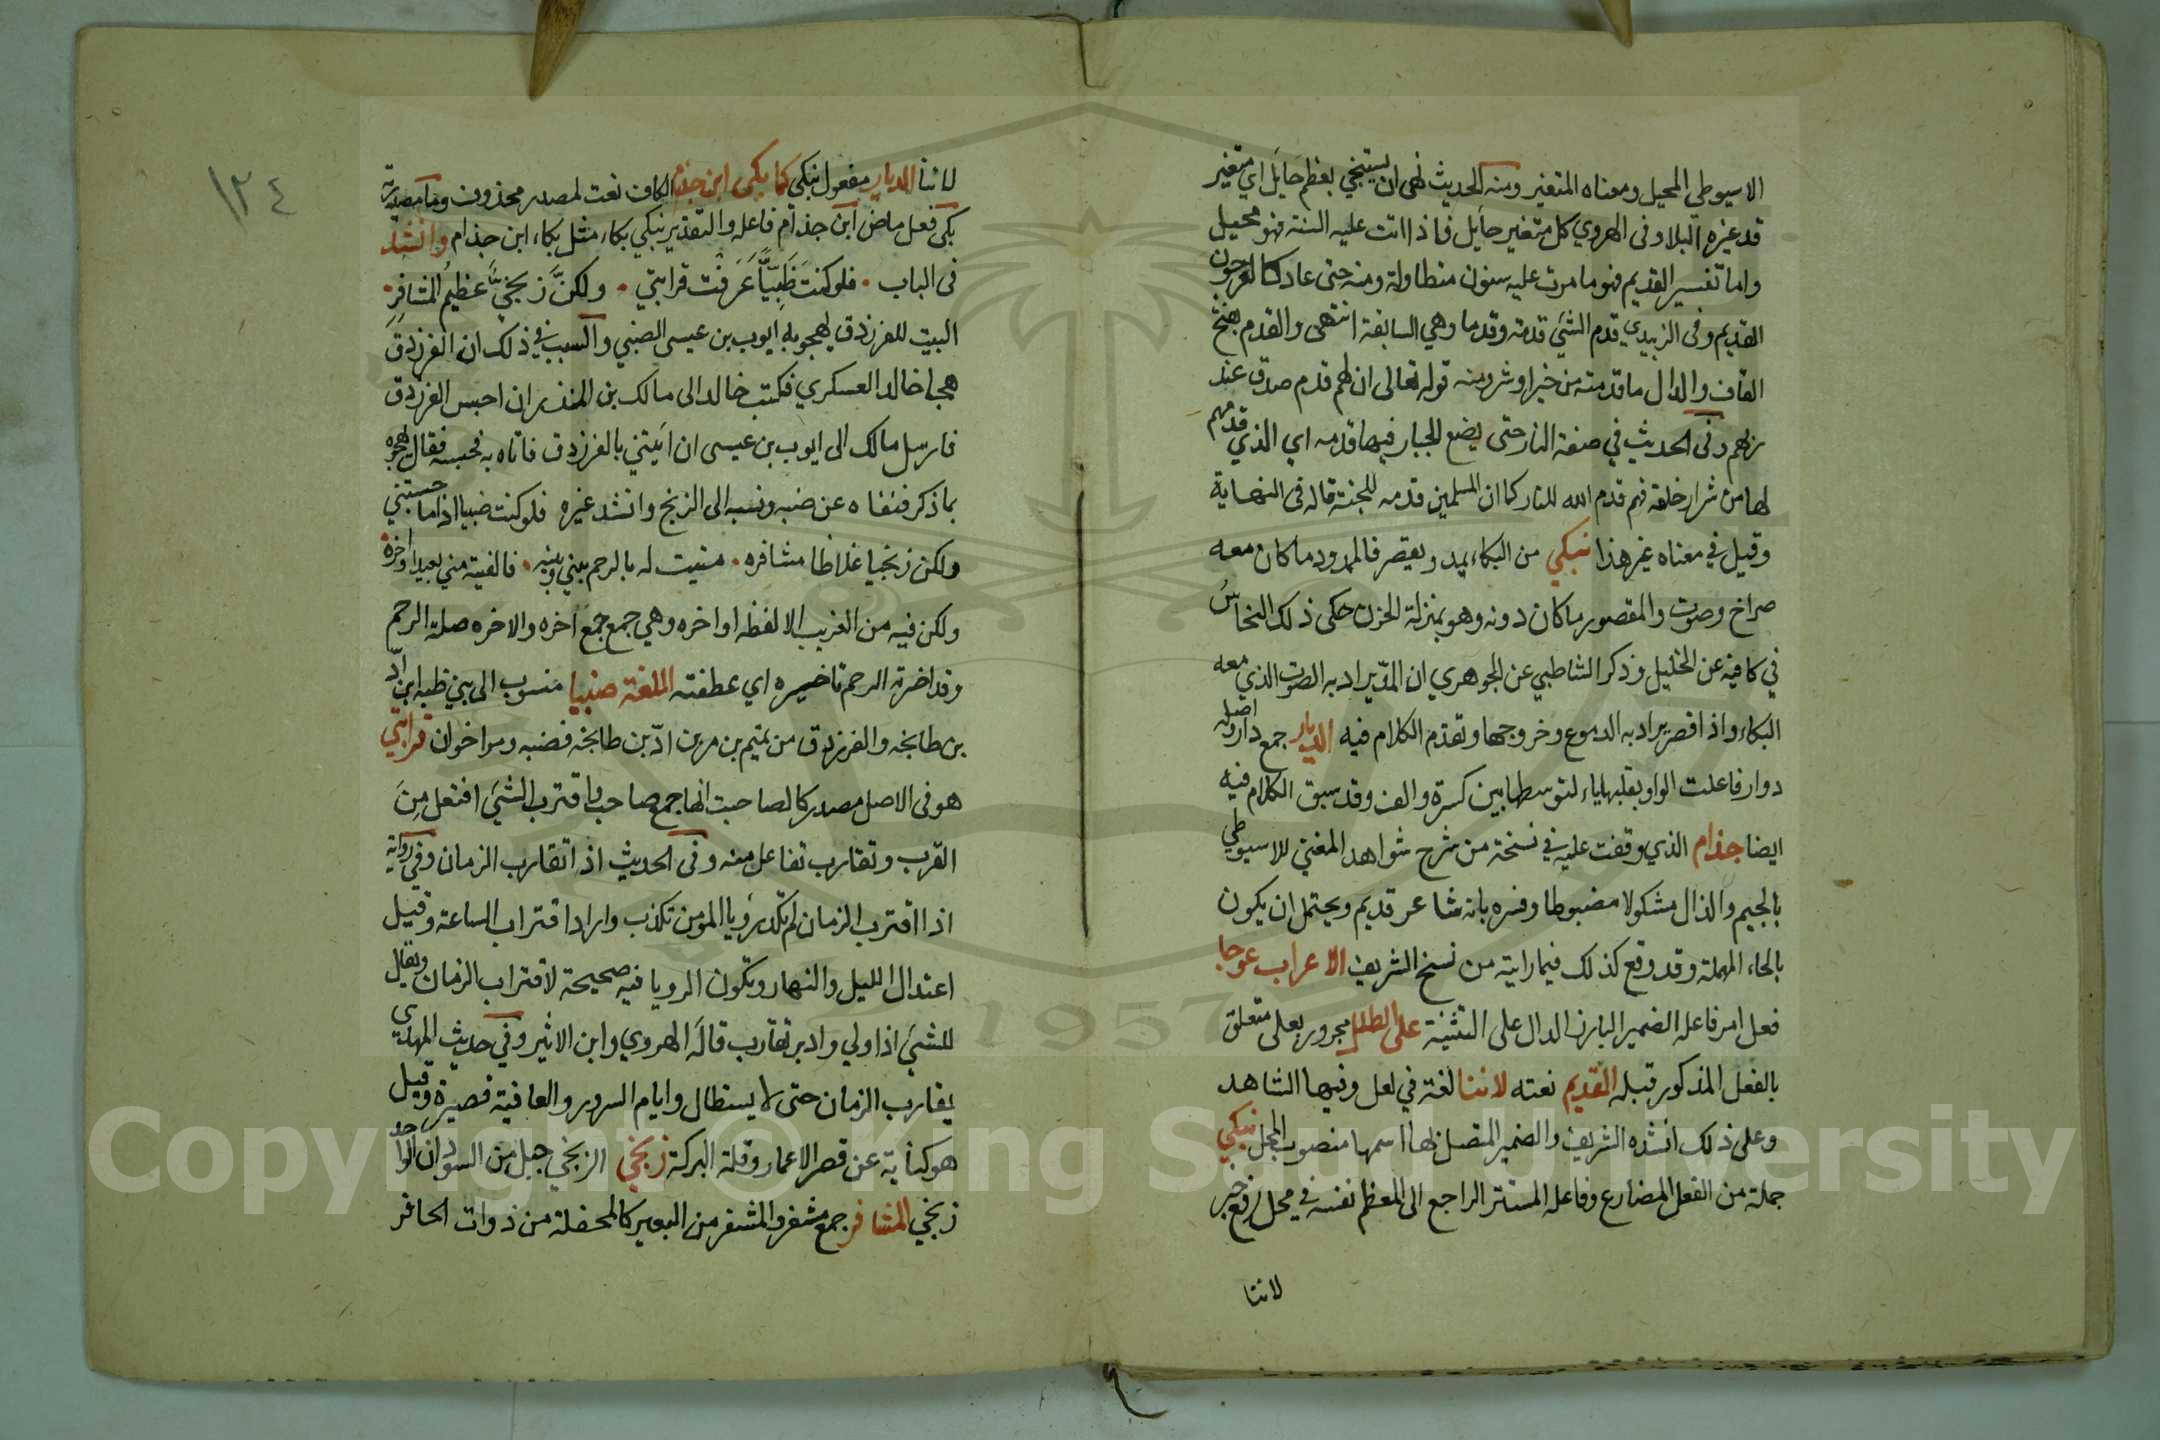 الاسيوطي المحيل ومعناه المتغير ومنه الحديث نهى ان يستنجي بعظم حايل اي متغير
قد غيره البلا وفى الهروي كل متغير حايل فاذا اتت عليه السنة فهو محيل
واما تفسير القديم فهو ما مرت عليه سنون متطاولة ومنه حتى عاد كالعرجون
القديم وفى الزبيدي قدم الشئ قدمة وقدما وهي السابقة انتهى والقدم بفتح
القاف والدال ما قدمته من خير او شر ومنه قوله تعالى ان لهم قدم صدق عند
ربهم وفى الحديث في صفة النار حتى يضع الجبار فيها قدمه اي الذي قدمهم
لها من شرار خلقه فهم قدم الله للنار كما ان المسلمين قدمه للجنة قاله فى النهاية
وقيل في معناه غير هذا نبكي من البكاء يمد ويقصر فالممدود ما كان معه
صراخ وصوت والمقصور ما كان دونه وهو بمنزلة الحزن حكى ذلك النحاس
في كافيه عن الخليل وذكر الشاطبي عن الجوهري ان المد يراد به الصوت الذي معه
البكاء واذا قصر يراد به الدموع وخروجها وتقدم الكلام فيه الديار جمع دار واصله
دوار فاعلت الواو بقلبها ياء لتوسطها بين كسرة والف وقد سبق الكلام فيه
ايضا جذام الذي وقفت عليه في نسخة من شرح شواهد المغني للاسيوطي
بالجيم والذال مشكولا مضبوطا وفسره بانه شاعر قديم ويحتمل ان يكون
بالحاء المهملة وقد وقع كذلك فيما رايته من نسخ الشريف الاعراب عوجا
فعل امر فاعله الضمير البارز الدال على التثنية على الطلل مجرور بعلى متعلق
بالفعل المذكور قبله القديم نعته لاننا لغة في لعل وفيها الشاهد
وعلى ذلك انشده الشريف والضمير المتصل بها اسمها منصوب المحل نبكي
جملة من الفعل المضارع وفاعله المستتر الراجع الى المعظم نفسه في محل رفع خبر
لاننا
١٣٤
لاننا الديار مفعول نبكي كما بكى ابن جذام الكاف نعت لمصدر محذوف وما مصدرية
بكى فعل ماض ابن جذام فاعله والتقدير نبكي بكاء مثل بكاء ابن جذام وانشد
فى الباب فلو كنت ظبيا عرفت قرابتي ولكن زنجي عظيم المشافر
البيت للفرزدق يهجو به ايوب بن عيسى الضبي والسبب في ذلك ان الفرزدق
هجا خالدا العسكري فكتب خالد الى مالك بن المنذر ان احبس الفرزدق
فارسل مالك الى ايوب بن عيسى ان ائتني بالفرزدق فاتاه به فحبسه فقال يهجوه
بما ذكر فنفاه عن ضبه ونسبه الى الزنج وانشد غيره فلو كنت ضبيا اذا ما حبستني
ولكن زنجيا غلاظا مشافره متيت له بالرحم بيني وبينه فالفيته مني بعيدا واخره
ولكن فيه من الغريب الا لفظه اواخره وهي جمع جمع آخره والاخره صلة الرحم
وقد اخرته الرحم تاخيره اي عطفته اللغة ضبيا منسوب الى بني ظبه ابن ادّ
بن طابخه والفرزدق من تميم بن مر بن ادّ بن طابخه فضبه ومر اخوان قرابتي
هو فى الاصل مصدر كالصاحبت انها جمع صاحب واقترب الشئ افتعل من
القرب وتقارب تفاعل منه وفى الحديث اذا تقارب الزمان وفي رواية
اذا اقترب الزمان لم تكد رؤيا المومن تكذب واراد اقتراب الساعة وقيل
اعتدال الليل والنهار وتكون الرويا فيه صحيحة لاقتراب الزمان ويقال
للشئ اذا ولي وادبر تقارب قاله الهروي وابن الاثير وفي حديث المهدي
يتقارب الزمان حتى لا يستطال وايام السرور والعافية قصيرة وقيل
هو كناية عن قصر الاعمار وقلة البركة زنجي الزنجي جيل من السودان الواحد
زنجي المشافر جمع مشفر والمشفر من البعير كالجحفلة من ذوات الحافر
Copyright © King Saud University
1957